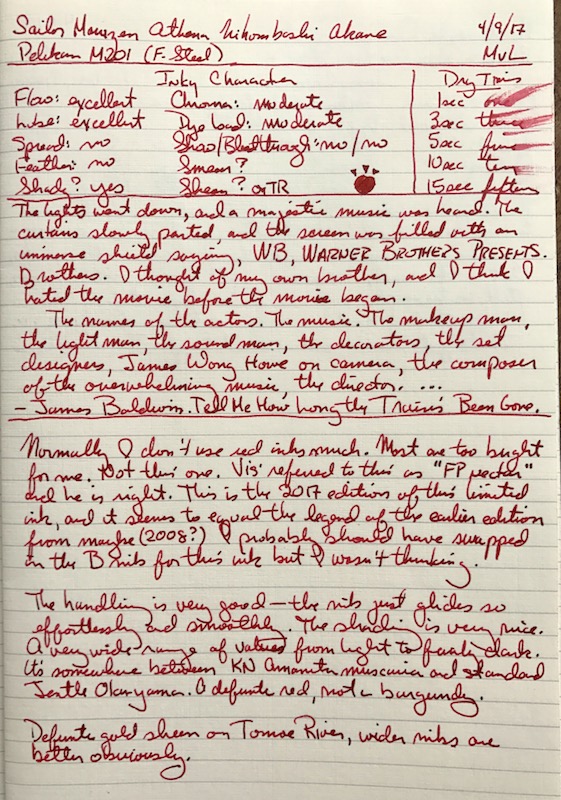 Sailor Maruzen Athena Nihombashi Akane 4/9/17
Pelikan M201 (F-Steel) MvL
Inky Character Dry Times
Flow: excellent Chroma: moderate 1 sec one
Lube: excellent Dye load: moderate 3 sec three
Spread: no Show/Bleedthrough: no / no 5 sec five
Feather: no Smear? 10 sec ten
Shade? yes Sheen? on TR 15 sec fifteen
The lights went down, and a majestic music was heard. The
curtains slowly parted, and the screen was filled with an
immense shield saying, WB, WARNER BROTHERS PRESENTS.
Brothers. I thought of my own brother, and I think I
hated the movie before the movie began.
The names of the actors. The music. The makeup man,
the light man, the sound man, the decorators, the set
designers, James Wong Howe on camera, the composer
of the overwhelming music, the director. ...
– James Baldwin. Tell Me How Long the Train's Been Gone.
Normally I don't use red inks much. Most are too bright
for me. Not this one. Vis referred to this as "FP nectar"
and he is right. This is the 2017 edition of this limited
ink, and it seems to equal the legend of the earlier edition
from maybe (2008?) I probably should have swapped
in the B nib for this ink but I wasn't thinking.
The handling is very good – the nib just glides so
effortlessly and smoothly. The shading is very nice.
A very wide range of values from light to fairly dark.
It's somewhere between KN Amanita muscaria and standard
Jentle Okuyama. A definite red, not a burgundy.
Definite gold sheen on Tomoe River, wider nibs are
better obviously.